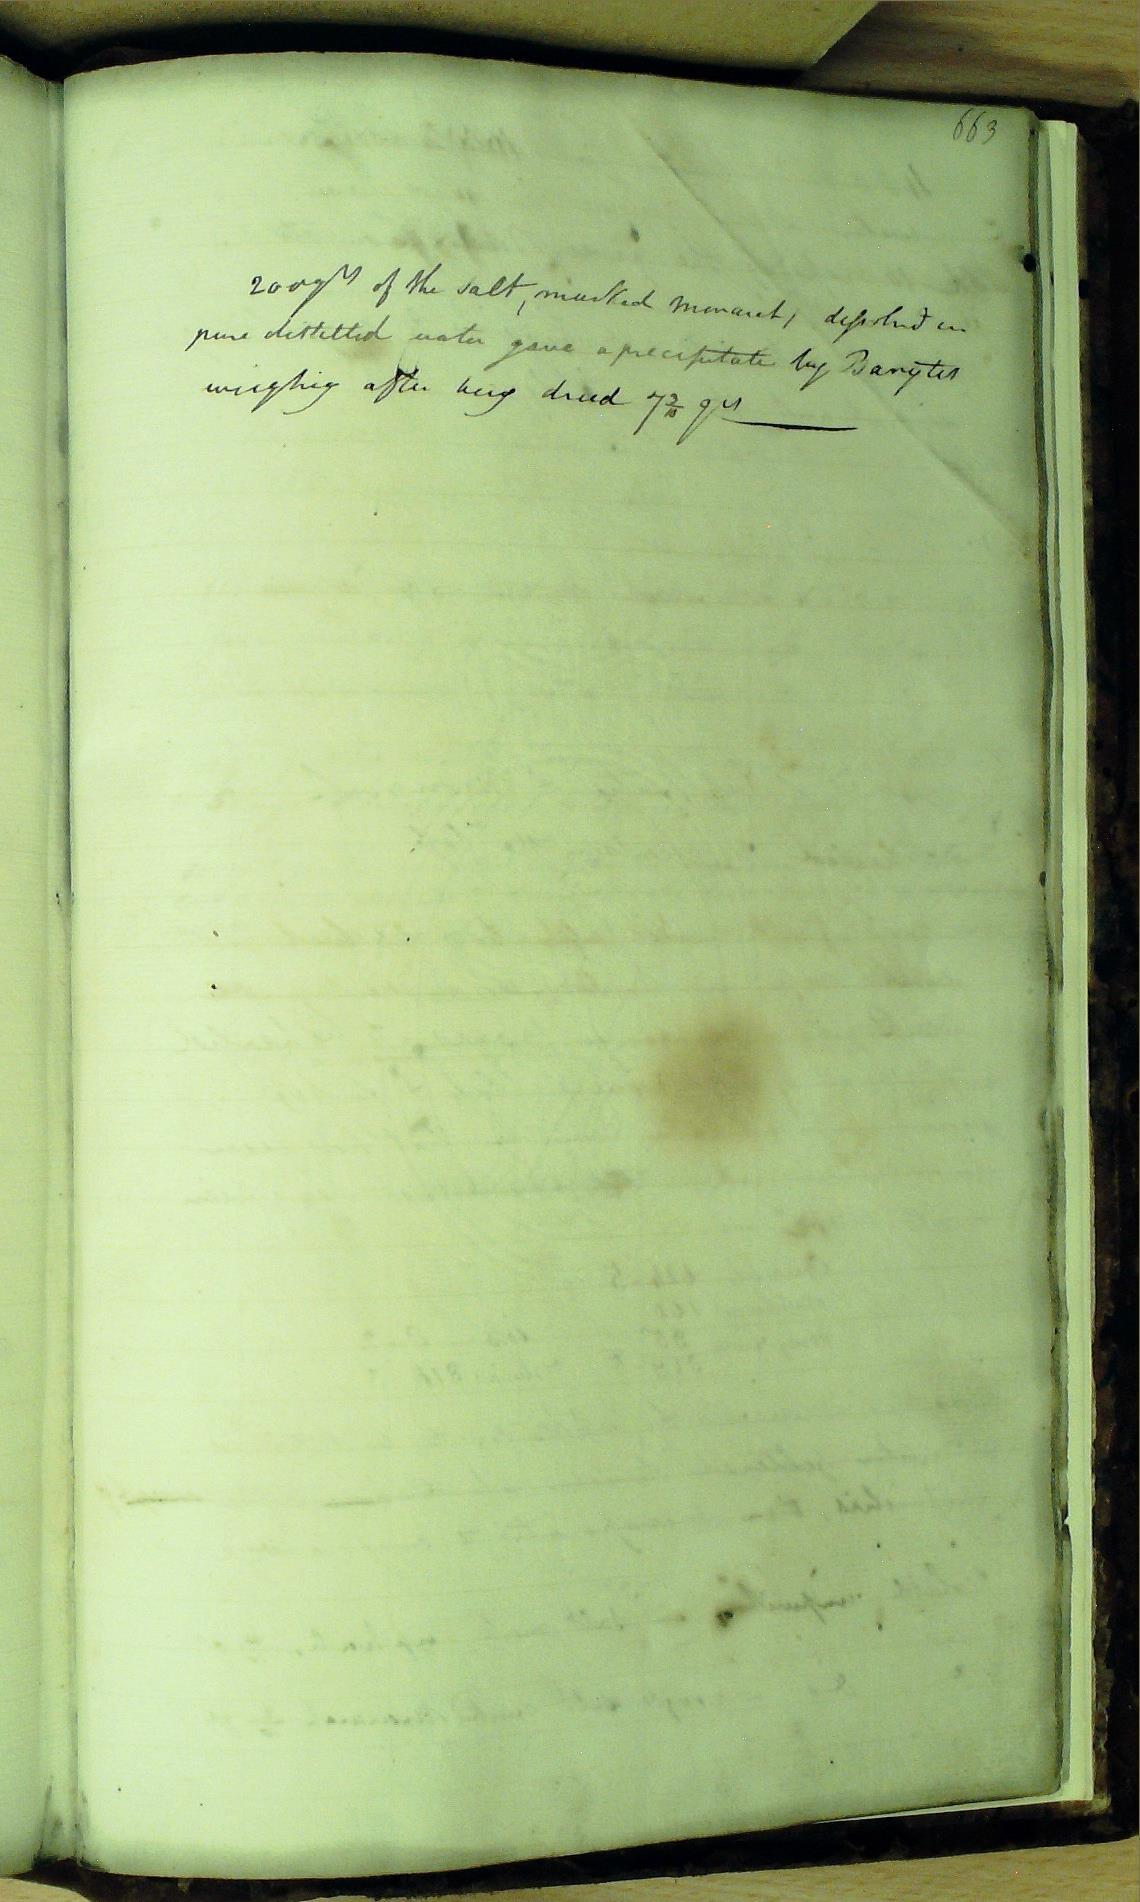 663
200 grs of the salt, marked monarch, dissolved in
pure distilled water gave a precipitate by Barytes
weighing after being dried 7 2/10 grs